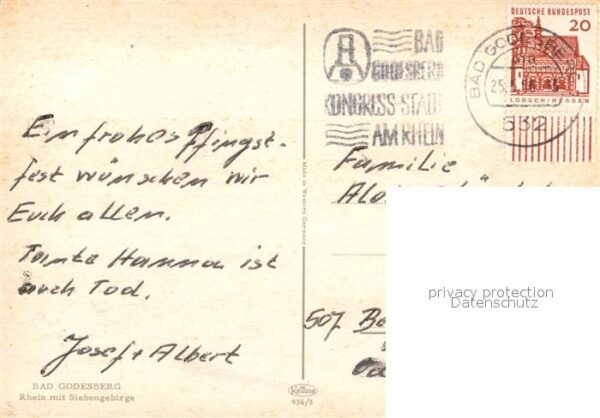 DEUTSCHE BUNDESPOST
20
LORSCH/HESSEN
BAD
GODESBERG
KONGRESS-STADT
AM RHEIN
BAD GODESBERG
25.5.66
532
Ein frohes Pfingst-
fest wünschen wir
Euch allen.
Tante Hanna ist
auch Tod.
Josef + Albert
BAD GODESBERG
Rhein mit Siebengebirge
Made in Western Germany
436/5
Familie
507
privacy protection
Datenschutz